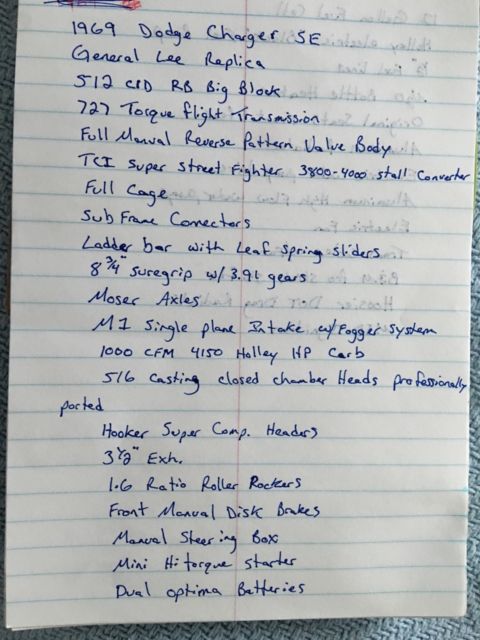 1969 Dodge Charger SE
General Lee Replica
512 CID RB Big Block
727 Torque flight Transmission
Full Manual Reverse Pattern Valve Body
TCI Super Street Fighter 3800-4000 stall Converter
Full Cage
Sub Frame Connectors
Ladder bar with Leaf Spring Sliders
8 3/4" suregrip w/ 3.91 gears
Moser Axles
M1 Single plane Intake w/Fogger System
1000 CFM 4150 Holley HP Carb
516 casting closed chamber Heads professionally
ported
Hooker Super Comp. Headers
3 1/2" Exh.
1.6 Ratio Roller Rockers
Front Manual Disk Brakes
Manual Steering Box
Mini Hi torque starter
Dual optima Batteries